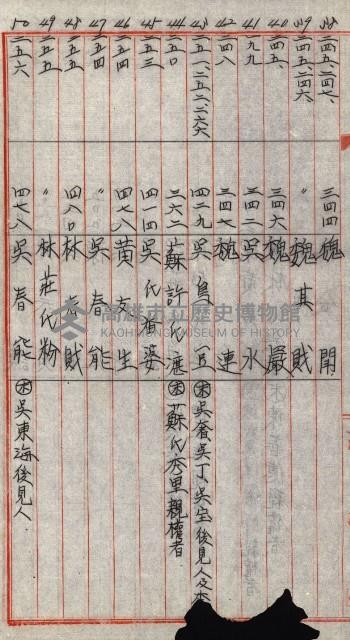 38 二四五、二四七、 三四四 魏 開
39 二四五、二四六、 〃 魏其賊
40 二四五、 三四六 魏 嚴
41 一九九 三四二 吳 水
42 二四八 三四七 魏 連
43 二五一、二五二、二六六 四二九 吳烏豆 ㊍吳奢吳丁吳宝後見人
44 二五〇 三六二 蘇許氏 ㊍蘇氏 里親權者
45 二五三 四一四 吳氏 婆
46 二五四 四七八 黃文生
47 二五四 〃 吳春能
48 二五五 四八〇 林 賊
49 二五五 〃 林莊氏粉
50 二五六 四七八 吳春能 ㊍吳東海後見人
高雄市立歷史博物館
KAOHSIUNG MUSEUM OF HISTORY